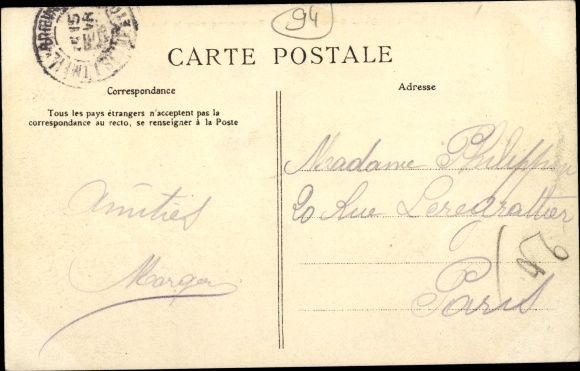 94
CARTE POSTALE
Correspondance
Adresse
Tous les pays étrangers n'acceptent pas la
correspondance au recto, se renseigner à la Poste
Amitiés
Madame Philippon
20 Rue Leregrattier
Paris